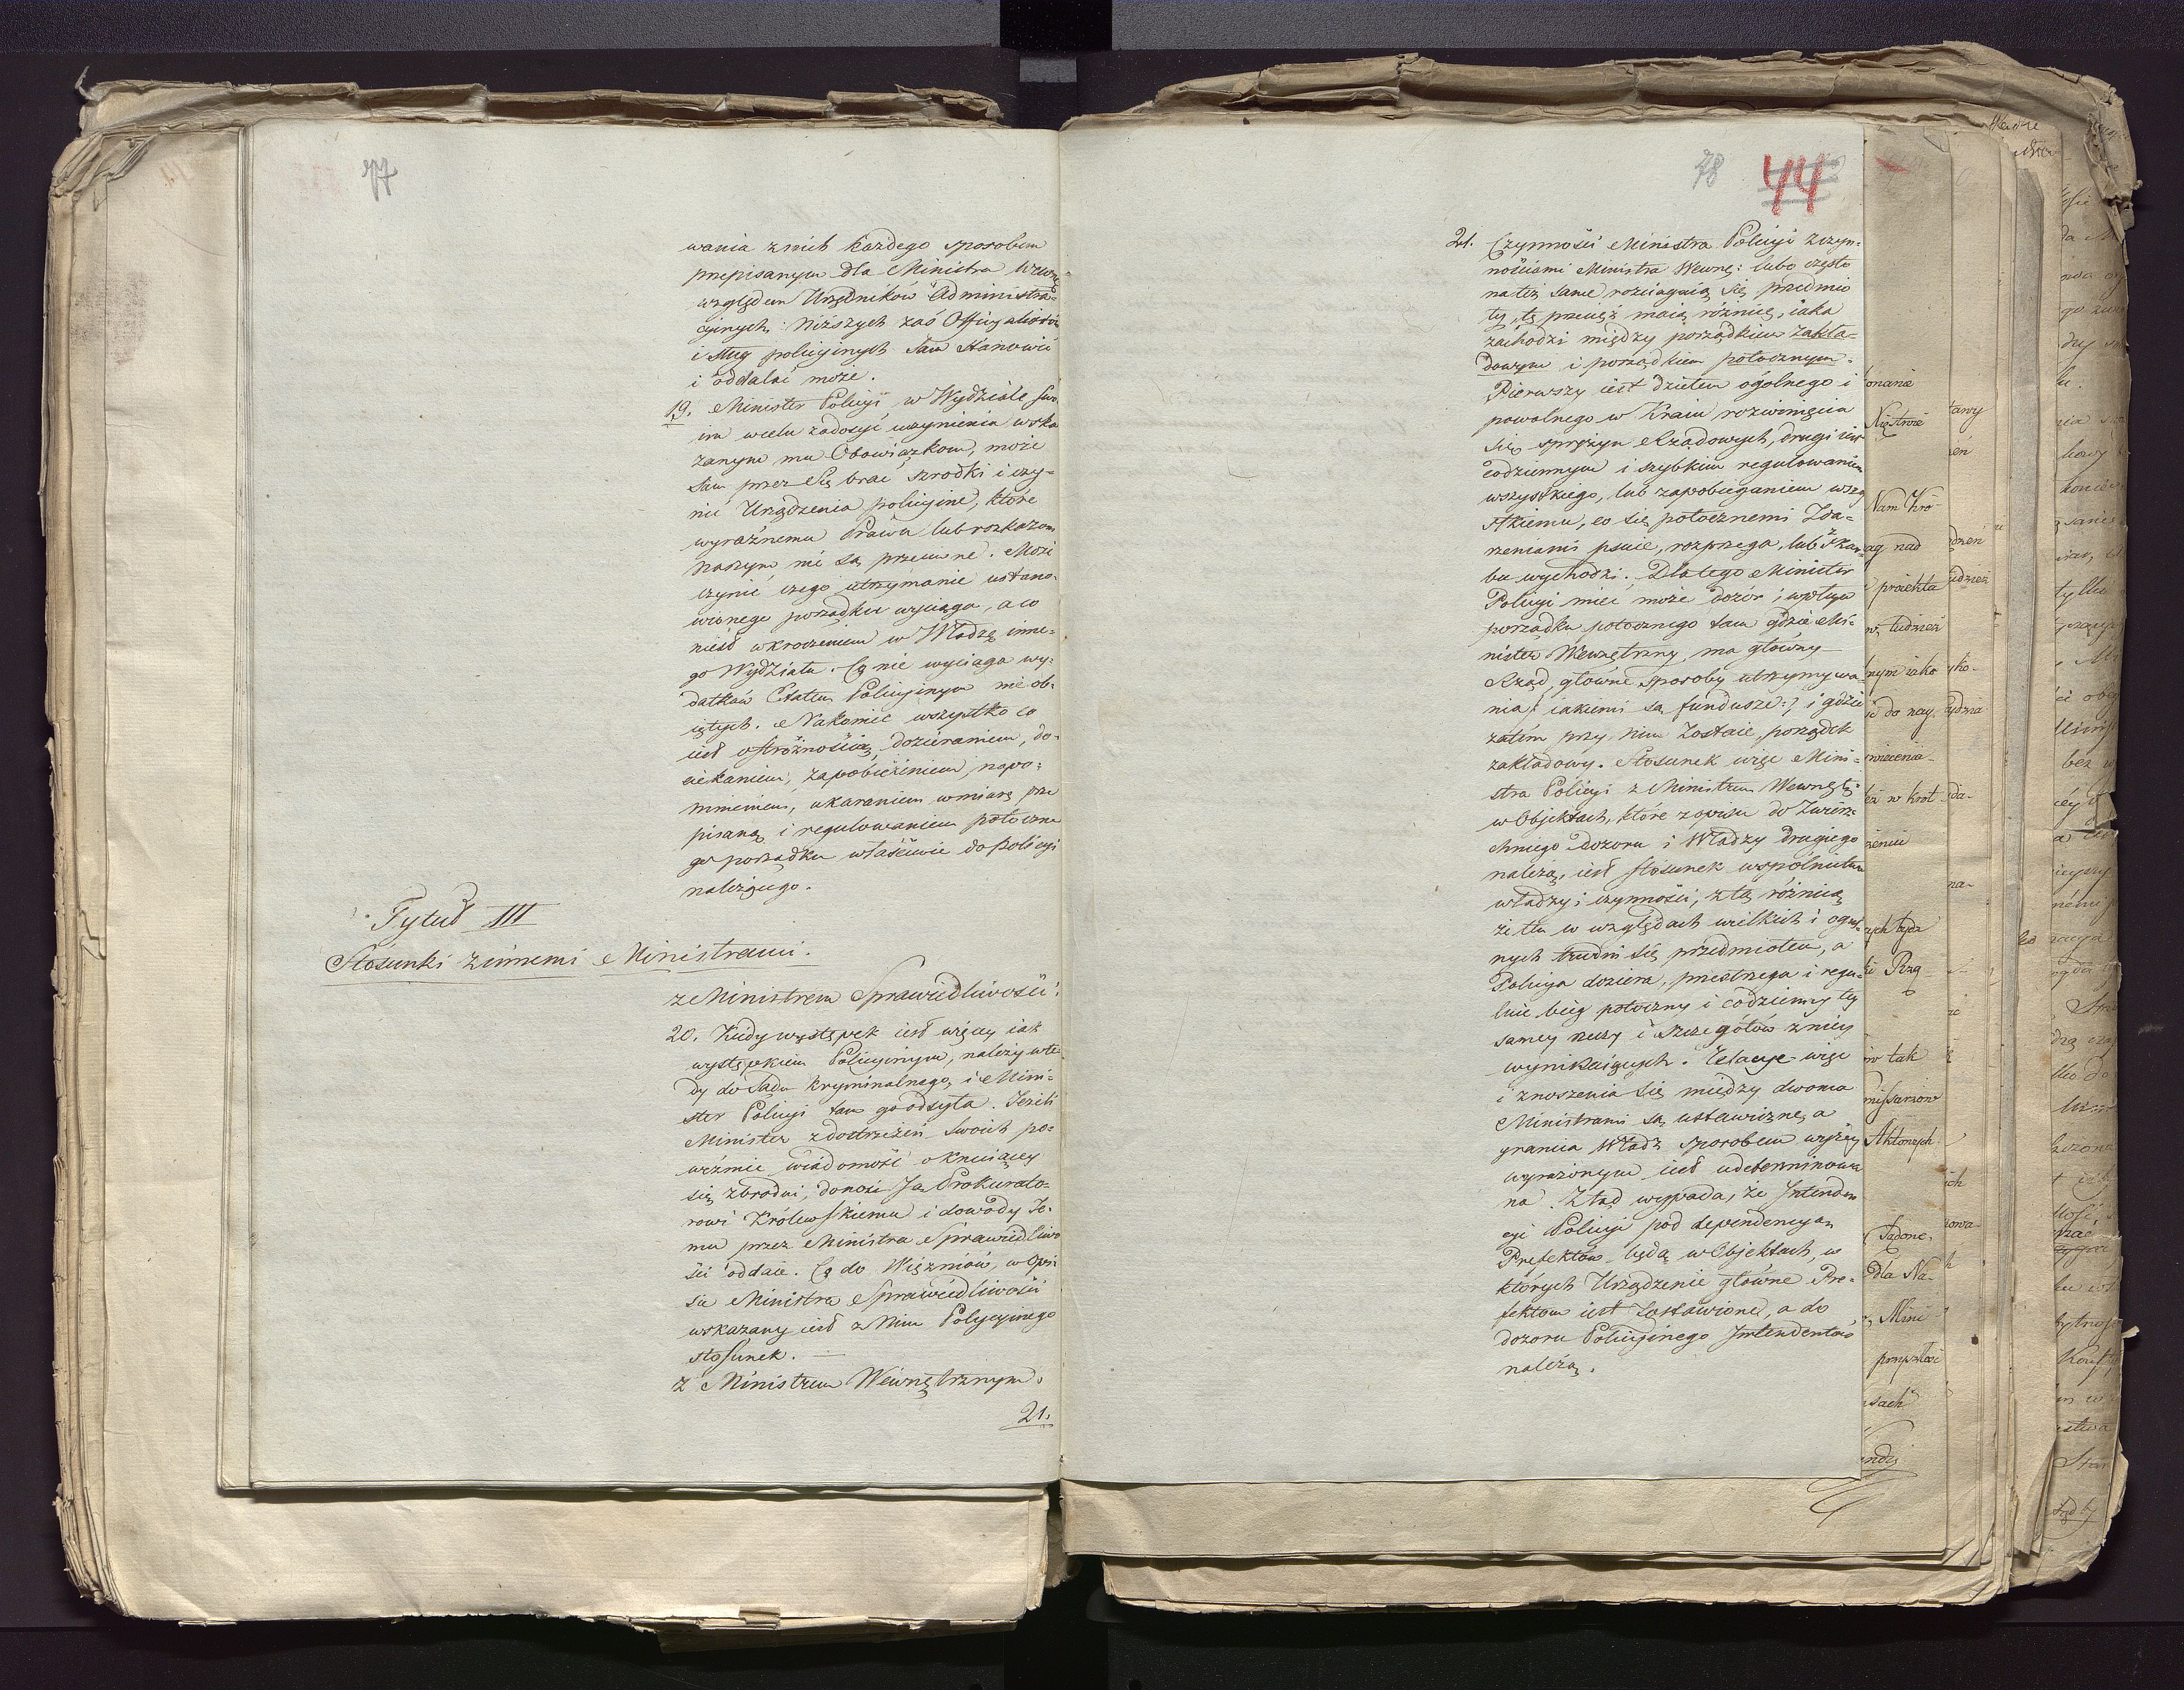 77
wania z nich każdego sposobem
przepisanym dla Ministra Wewnę
względem Urzędników Administra-
cyinych; Niższych zaś Officyalistów
i sług policyinych sam stanowić
i oddalać może.
19. Minister Policyi w Wydziale swo
im w celu zadosyć uczynienia wska
zanym mu Obowiązkom, może
sam przez się brać szrodki i czy-
nić Urządzenia policyine, które
wyraźnemu Prawu lub rozkazom
naszym nie są przeciwne. Może
czynić czego utrzymanie ustano-
wionego porządku wyciąga, a co
nieśt wkroczeniem w Władzę inne-
go Wydziału. Co nie wyciąga wy-
datków Etatem Policyinym nie ob-
iętych. Nakoniec wszystko co
iest ostróżnością, dozieraniem, do-
ciekaniem, zapobieżeniem napo-
mnieniem, ukaraniem w miarę prze
pisaną i regulowaniem potoczne
go porządku właściwie do Policyi
należącego.
Tytuł III
Stosunki z innemi Ministrami.
z Ministrem Sprawiedliwości.
20. Kiedy występek iest więcey iak
występkiem Policyinym, należy wte
dy do Sądu kryminalnego, i Mini-
ster Policyi tam go odsyła. Jeżeli
Minister z dostrzeżeń swoich po-
weźmie wiadomość o knuiącey
się zbrodni, donosi Ją Prokurato-
rowi Królewskiemu i dowody Je-
mu przez Ministra Sprawiedliwo
ści oddaie. Co do Więźniów, w Opi-
sie Ministra Sprawiedliwości
wskazany iest z Nim Policyinego
stosunek. —
z Ministrem Wewnętrznym.
21.
78 44
21. Czynności Ministra Policyi z czyn-
nościami Ministra Wewnę: lubo często
na też same rozciągaią się przedmio
ty, tę przecięż maią różnicę, iaka
zachodzi między porządkiem zakła-
dowym i porządkiem potocznym.
Pierwszy iest dziełem ogólnego i
powolnego w Kraiu rozwinięcia
się sprężyn Rządowych, drugi iest
codziennym i szybkim regulowaniem
wszystkiego, lub zapobieganiem wszy
stkiemu, co się potocznemi Zda-
rzeniami psuie, rozprzega, lub z kar-
bu wychodzi. Dlatego Minister
Policyi mieć może dozór i wpływ
porządku potocznego tam gdzie Mi-
nister Wewnętrzny ma główny
Rząd, główne sposoby utrzymywa-
nia /: iakiemi są fundusze :/ i gdzie
zatém przy nim zostaie porządek
zakładowy. Stosunek więc Mini-
stra Policyi z Ministrem Wewnętz:
w Objektach, które z opisu do Zwierz-
chniego dozoru i Władzy drugiego
należą, iest stosunek wspólnictwa
władzy i czynności, z tą różnicą
że ten w względach wielkich i ogól-
nych trudni się przedmiotem, a
Policya doziera, przestrzega i regu-
luie bieg potoczny i codzienny tey
samey rzeczy i szczegółów z niey
wynikaiących. Relacye więc
i znoszenia się między dwoma
Ministrami są ustawiczne, a
granica Władz sposobem wyżey
wyrażonym iest udeterminowa
na. Ztąd wypada, że Intenden
ci Policyi pod dependencyą
Prefektów będą w Objektach, w
których Urządzenie główne Pre-
fektom iest zostawione, a do
dozoru Policyinego Intendentów
należą.
onania
Nam Kró-
ag nad
proiekta
tudzież
nym iako
ić do nay-
wiecenia
eż w krot
Rzą
w tak
missarzow
Aktowych
Sądowe,
Dla Na-
Mini-
przyszłości
sach